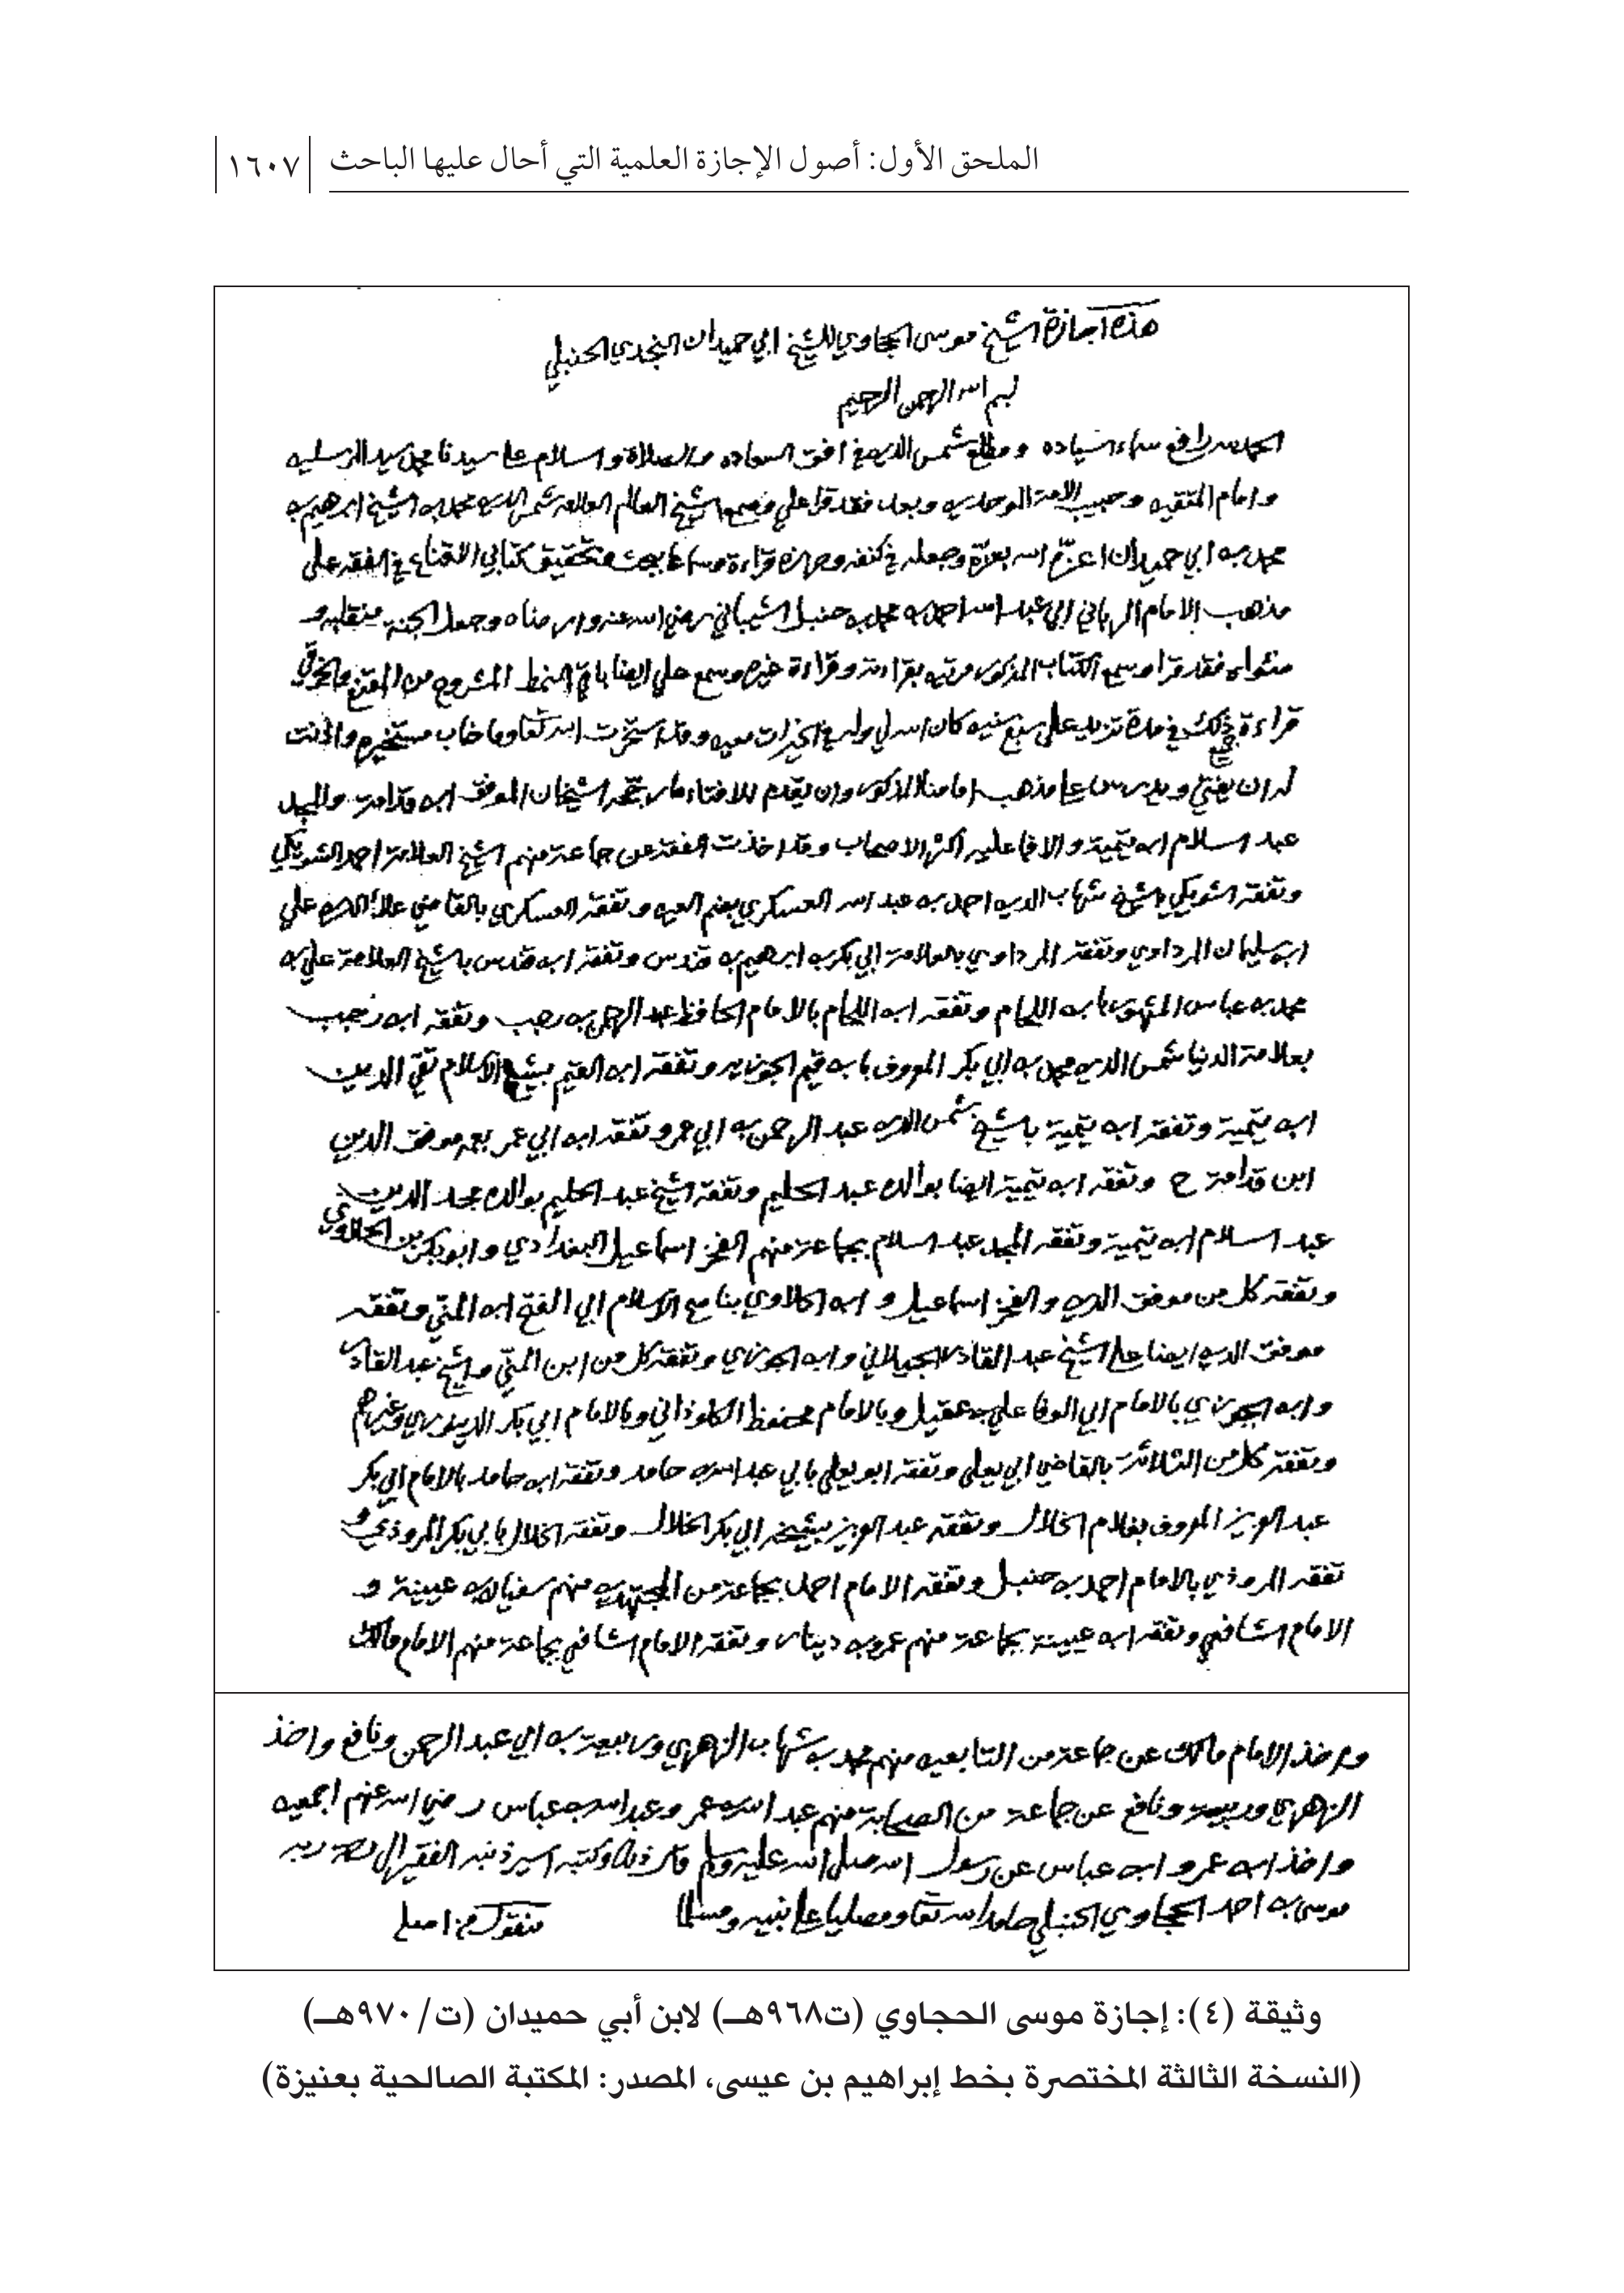 الملحق الأول: أصول الإجازة العلمية التي أحال عليها الباحث ١٦٠٧
هذه اجازة الشيخ موسى الحجاوي للشيخ ابي حميدان النجدي الحنبلي
بسم الله الرحمن الرحيم
الحمد لله رافع سماء السياده ومطلع شمس الدين في افق السعاده والصلاة والسلام على سيدنا محمد سيد المرسلين
وامام المتقين وحبيب وبعد فقد قرا علي وسمع الشيخ العالم العلامه شمس الدين محمد بن الشيخ ابرهيم بن
محمد بن ابي حميدان اعزه الله بعزه وجعله في كنفه وحرزه قراءة وسماعا ببحث وتحقيق كتابي الاقناع في الفقه على
مذهب الامام الرباني ابي عبد الله احمد بن محمد بن حنبل الشيباني رضي الله عنه وارضاه وجعل الجنة منقلبه و
مثواه فقد قرا وسمع الكتاب المذكور مرتين بقراءته وقراءة غيره وسمع علي ايضا باقي المشروح من المقنع
قراءة في مدة تزيد على سبع سنين كان الله لي وله في الخيرات معين وقد استخرت الله تعالى وما خاب مستخيره واذنت
له ان يفتي ويدرس على مذهب امامنا المذكور وان يقدم للافتاء ما رجحه الشيخان الموفق ابن قدامة والمجد
عبد السلام ابن تيمية والا فما عليه اكثر الاصحاب وقد اخذت الفقه عن جماعة منهم الشيخ العلامة احمد الشويكي
وتفقه الشويكي بالشيخ شهاب الدين احمد بن عبد الله العسكري بضم العين وتفقه العسكري بالقاضي علاء الدين علي
ابن سليمان المرداوي وتفقه المرداوي بالعلامة ابي بكر بن ابرهيم بن قندس وتفقه ابن قندس بالشيخ العلامة علي بن
محمد بن عباس المشهور بابن اللحام وتفقه ابن اللحام بالامام الحافظ عبد الرحمن بن رجب وتفقه ابن رجب
بعلامة الدنيا شمس الدين محمد بن ابي بكر المعروف بابن قيم الجوزيه وتفقه ابن القيم بشيخ الاسلام تقي الدين
ابن تيمية وتفقه ابن تيمية بالشيخ شمس الدين عبد الرحمن بن ابي عمر وتفقه ابن ابي عمر بعمه موفق الدين
ابن قدامة ح وتفقه ابن تيمية ايضا بوالده عبد الحليم وتفقه الشيخ عبد الحليم بوالده مجد الدين
عبد السلام ابن تيمية وتفقه المجد عبد السلام بجماعة منهم الفخر اسماعيل البغدادي وابو بكر بن الحلاوي
وتفقه كل من موفق الدين والفخر اسماعيل وابن الحلاوي بناصح الاسلام ابي الفتح ابن المني وتفقه
موفق الدين ايضا على الشيخ عبد القادر الجيلاني وابن الجوزي وتفقه كل من ابن المني والشيخ عبد القادر
وابن الجوزي بالامام ابي الوفا علي بن عقيل وبالامام محفوظ الكلوذاني وبالامام ابي بكر الدينوري وغيرهم
وتفقه كل من الثلاثة بالقاضي ابي يعلى وتفقه ابو يعلى بابي عبد الله بن حامد وتفقه ابن حامد بالامام ابي بكر
عبد العزيز المعروف بغلام الخلال وتفقه عبد العزيز بشيخه ابي بكر الخلال وتفقه الخلال بابي بكر المروذي و
تفقه المروذي بالامام احمد بن حنبل وتفقه الامام احمد بجماعة من المجتهدين منهم سفيان بن عيينة و
الامام الشافعي وتفقه ابن عيينة بجماعة منهم عمرو بن دينار وتفقه الامام الشافعي بجماعة منهم الامام مالك
واخذ الامام مالك عن جماعة من التابعين منهم محمد بن شهاب الزهري وربيعة بن ابي عبد الرحمن ونافع واخذ
الزهري وربيعة ونافع عن جماعة من الصحابة منهم عبد الله بن عمر وعبد الله بن عباس رضي الله عنهم اجمعين
واخذ ابن عمر وابن عباس عن رسول الله صلى الله عليه وسلم قال ذلك وكتبه اسير ذنبه الفقير الى رحمة ربه
موسى بن احمد الحجاوي الحنبلي حامدا لله تعالى ومصليا على نبيه ومسلما منقول من اصله
وثيقة (٤): إجازة موسى الحجاوي (ت٩٦٨هـ) لابن أبي حميدان (ت/٩٧٠هـ)
(النسخة الثالثة المختصرة بخط إبراهيم بن عيسى، المصدر: المكتبة الصالحية بعنيزة)